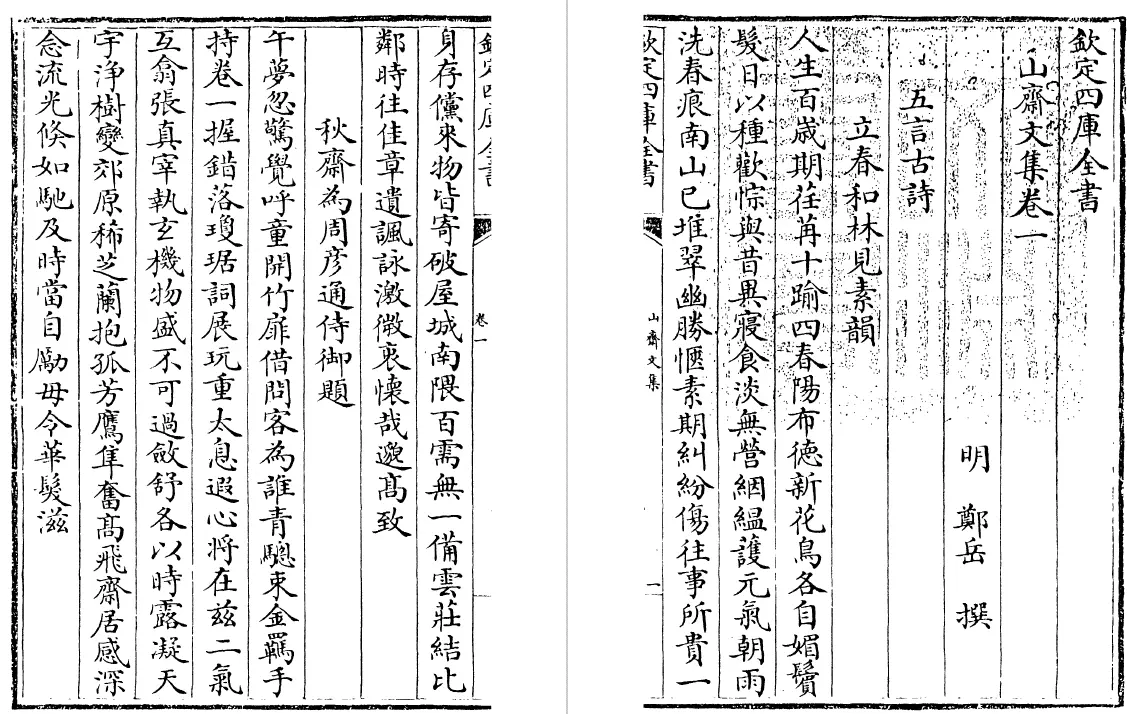 欽定四庫全書
山齋文集卷一
明 鄭岳 撰
五言古詩
立春和林見素韻
人生百歲期荏苒十踰四春陽布德新花鳥各自媚鬢
髮日以種歡悰與昔異寢食淡無營絪緼護元氣朝雨
洗春痕南山已堆翠幽勝愜素期糾紛傷往事所貴一
欽定四庫全書
山齋文集
一
欽定四庫全書
卷一
身存儻來物皆寄破屋城南隈百需無一備雲莊結比
鄰時往佳章遺諷詠激微衷懐哉邈髙致
秋齋為周彦通侍御題
午夢忽驚覺呼童開竹扉借問客為誰青驄束金羈手
持卷一握錯落瓊琚詞展玩重太息遐心将在兹二氣
互翕張真宰執玄機物盛不可過斂舒各以時露凝天
宇浄樹變郊原稀芝蘭抱孤芳鷹隼奮髙飛齋居感深
念流光倐如馳及時當自勵毋令華髮滋